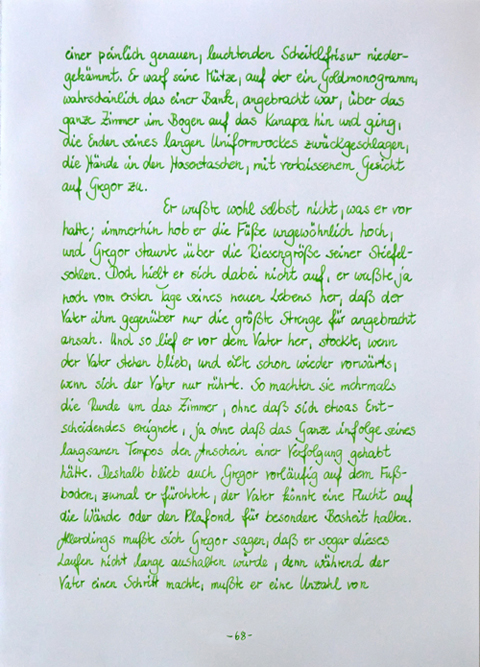 einer peinlich genauen, leuchtenden Scheitelfrisur nieder-
gekämmt. Er warf seine Mütze, auf der ein Goldmonogramm,
wahrscheinlich das einer Bank, angebracht war, über das
ganze Zimmer im Bogen auf das Kanapee hin und ging,
die Enden seines langen Uniformrockes zurückgeschlagen,
die Hände in den Hosentaschen, mit verbissenem Gesicht
auf Gregor zu.
Er wußte wohl selbst nicht, was er vor
hatte; immerhin hob er die Füße ungewöhnlich hoch,
und Gregor staunte über die Riesengröße seiner Stiefel-
sohlen. Doch hielt er sich dabei nicht auf, er wußte ja
noch vom ersten Tage seines neuen Lebens her, daß der
Vater ihm gegenüber nur die größte Strenge für angebracht
ansah. Und so lief er vor dem Vater her, stockte, wenn
der Vater stehen blieb, und eilte schon wieder vorwärts,
wenn sich der Vater nur rührte. So machten sie mehrmals
die Runde um das Zimmer, ohne daß sich etwas Ent-
scheidendes ereignete, ja ohne daß das Ganze infolge seines
langsamen Tempos den Anschein einer Verfolgung gehabt
hätte. Deshalb blieb auch Gregor vorläufig auf dem Fuß-
boden, zumal er fürchtete, der Vater könnte eine Flucht auf
die Wände oder den Plafond für besondere Bosheit halten.
Allerdings mußte sich Gregor sagen, daß er sogar dieses
Laufen nicht lange aushalten würde, denn während der
Vater einen Schritt machte, mußte er eine Unzahl von
-68-